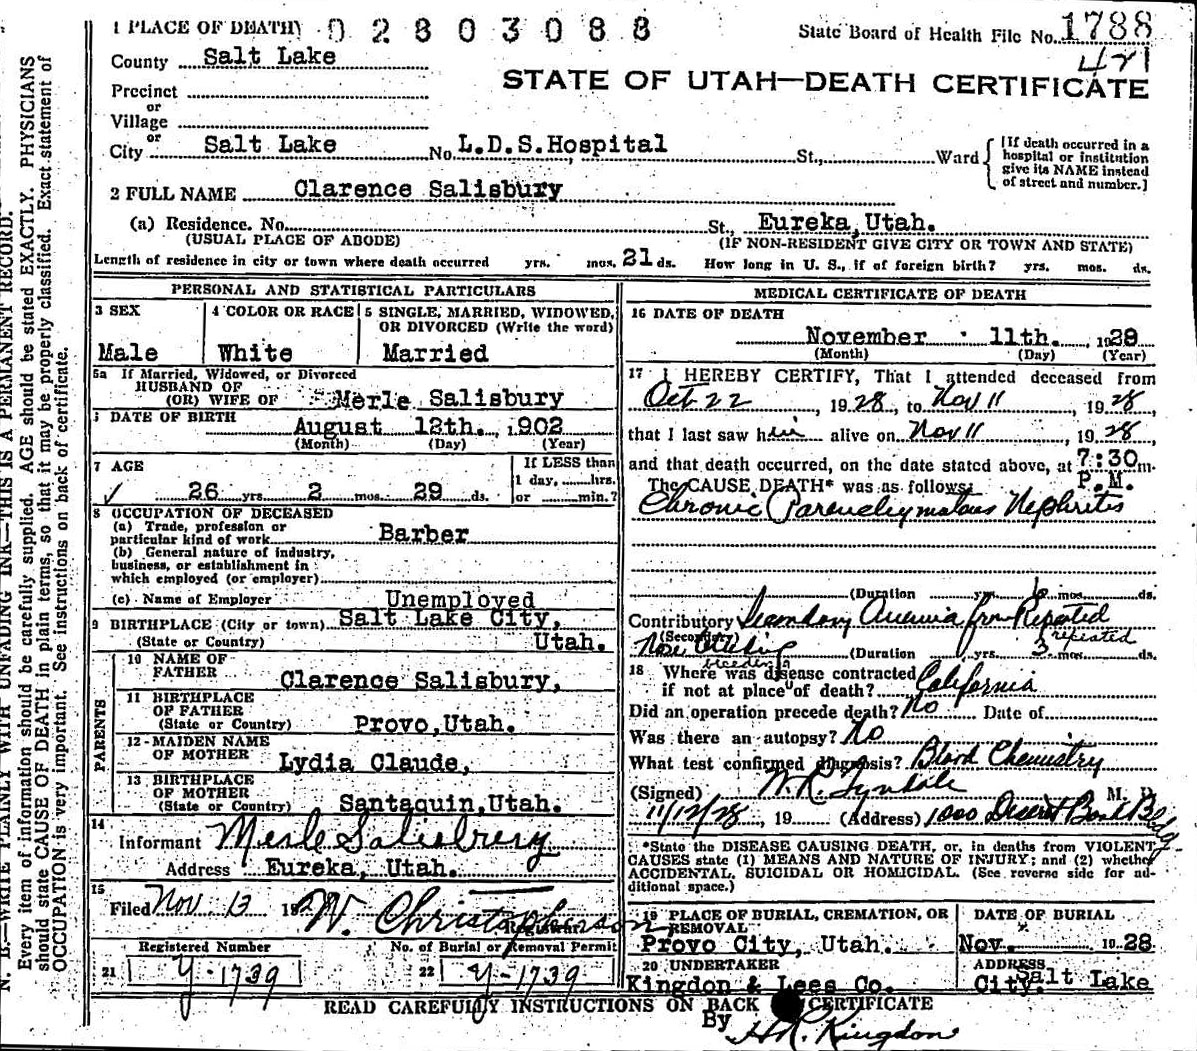 1 PLACE OF DEATH 02803088 State Board of Health File No. 1788
421
County Salt Lake
STATE OF UTAH—DEATH CERTIFICATE
Precinct
or
Village
or
City Salt Lake No. L.D.S.Hospital St., Ward [If death occurred in a hospital or institution give its NAME instead of street and number.]
2 FULL NAME Clarence Salisbury
(a) Residence. No. St., Eureka,Utah.
(USUAL PLACE OF ABODE) (IF NON-RESIDENT GIVE CITY OR TOWN AND STATE)
Length of residence in city or town where death occurred yrs. mos. 21 ds. How long in U. S., if of foreign birth? yrs. mos. ds.
PERSONAL AND STATISTICAL PARTICULARS
3 SEX
Male
4 COLOR OR RACE
White
5 SINGLE, MARRIED, WIDOWED, OR DIVORCED (Write the word)
Married
5a If Married, Widowed, or Divorced
HUSBAND OF
(OR) WIFE OF Merle Salisbury
DATE OF BIRTH August 12th., 1902
(Month) (Day) (Year)
7 AGE
26 yrs. 2 mos. 29 ds.
If LESS than
1 day, hrs.
or min.?
8 OCCUPATION OF DECEASED
(a) Trade, profession or
particular kind of work Barber
(b) General nature of industry,
business, or establishment in
which employed (or employer)
(c) Name of Employer Unemployed
9 BIRTHPLACE (City or town) Salt Lake City,
(State or Country) Utah.
PARENTS
10 NAME OF
FATHER Clarence Salisbury,
11 BIRTHPLACE
OF FATHER
(State or Country) Provo,Utah.
12 MAIDEN NAME
OF MOTHER Lydia Claude,
13 BIRTHPLACE
OF MOTHER
(State or Country) Santaquin,Utah.
14
Informant Merle Salisbury
Address Eureka, Utah.
15
Filed Nov 13 192 W. Christopherson
Registrar
Registered Number No. of Burial or Removal Permit
21 Y-1739 22 Y-1739
MEDICAL CERTIFICATE OF DEATH
16 DATE OF DEATH
November 11th., 1928
(Month) (Day) (Year)
17 I HEREBY CERTIFY, That I attended deceased from
Oct 22, 1928, to Nov 11, 1928,
that I last saw him alive on Nov 11, 1928,
and that death occurred, on the date stated above, at 7:30 m.
P.M.
The CAUSE DEATH* was as follows:
Chronic Parenchymatous Nephritis
(Duration yrs. 6 mos. ds.
Contributory Secondary Anemia from Repeated
(Secondary) repeated
Nose bleeding (Duration yrs. 3 mos. ds.
bleeding
18 Where was disease contracted
if not at place of death? California
Did an operation precede death? No Date of
Was there an autopsy? No
What test confirmed diagnosis? Blood Chemistry
(Signed) W. R. Tyndale M. D.
11/12/28, 19 (Address) 1000 Deseret Bank Bldg.
*State the DISEASE CAUSING DEATH, or, in deaths from VIOLENT
CAUSES state (1) MEANS AND NATURE OF INJURY; and (2) whether
ACCIDENTAL, SUICIDAL OR HOMICIDAL. (See reverse side for additional space.)
19 PLACE OF BURIAL, CREMATION, OR
REMOVAL
Provo City, Utah.
DATE OF BURIAL
Nov. 1928
20 UNDERTAKER
Kingdon & Lees Co.
ADDRESS
Salt Lake
City.
READ CAREFULLY INSTRUCTIONS ON BACK CERTIFICATE
By H.R. Kingdon
N. B.—WRITE PLAINLY WITH UNFADING INK—THIS IS A PERMANENT RECORD.
Every item of information should be carefully supplied. AGE should be stated EXACTLY. PHYSICIANS
should state CAUSE OF DEATH in plain terms, so that it may be properly classified. Exact statement of
OCCUPATION is very important. See instructions on back of certificate.